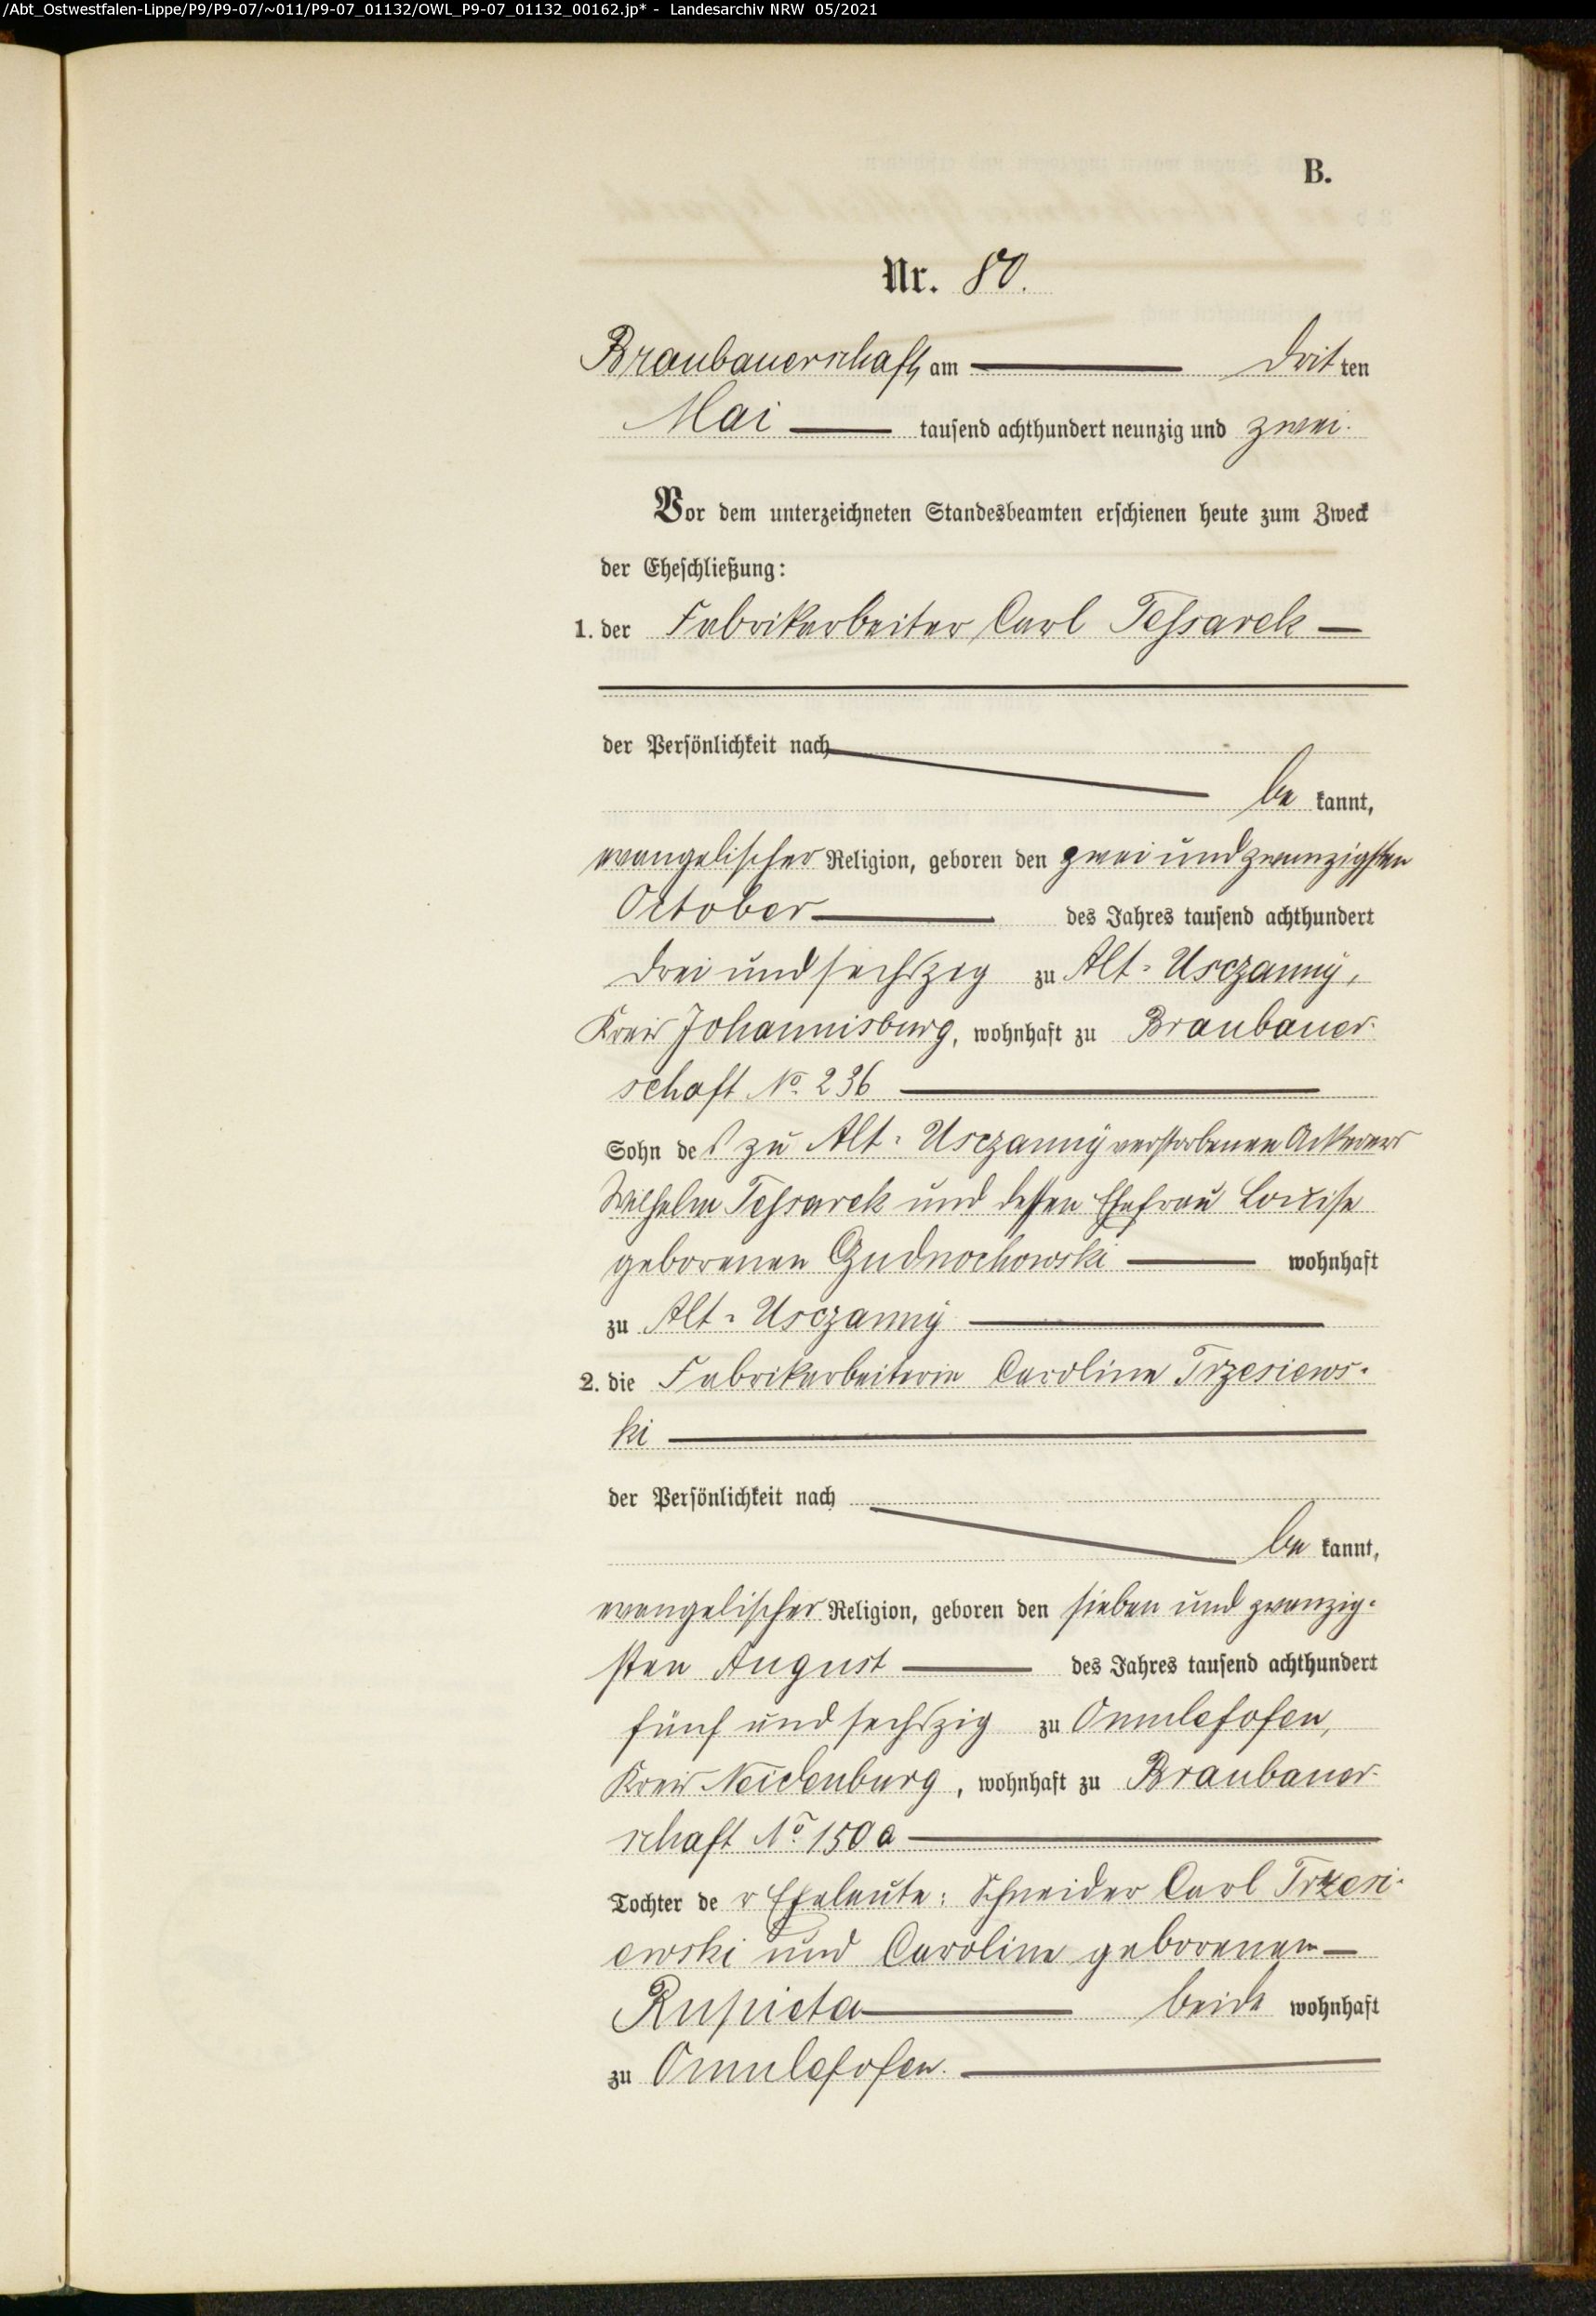 /Abt_Ostwestfalen-Lippe/P9/P9-07/~011/P9-07_01132/OWL_P9-07_01132_00162.jp* - Landesarchiv NRW 05/2021
B.
Nr. 80.
Braubauerschaft, am dritten
Mai tausend achthundert neunzig und zwei.
Vor dem unterzeichneten Standesbeamten erschienen heute zum Zweck
der Eheschließung:
1. der Fabrikarbeiter Carl Teſsarek
der Persönlichkeit nach
bekannt,
evangelischer Religion, geboren den zwei und zwanzigsten
October des Jahres tausend achthundert
drei und sechszig zu Alt-Usczanny,
Kreis Johannisburg, wohnhaft zu Braubauer-
schaft No. 236
Sohn des zu Alt-Usczanny verstorbenen Ackerers
Wilhelm Teſsarek und dessen Ehefrau Louise
geborenen Gudnochowski wohnhaft
zu Alt-Usczanny
2. die Fabrikarbeiterin Caroline Trzesiews-
ki
der Persönlichkeit nach
bekannt,
evangelischer Religion, geboren den sieben und zwanzig-
sten August des Jahres tausend achthundert
fünf und sechszig zu Omulefofen,
Kreis Neidenburg, wohnhaft zu Braubauer-
schaft No. 150 a
Tochter der Eheleute: Schneider Carl Trzesi-
ewski und Caroline geborenen
Rupieta beide wohnhaft
zu Omulefofen.